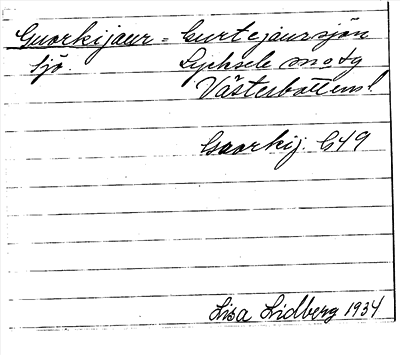 Guorkijaur = Gurtejaursjön
sjö. Lycksele m otg
Västerbottens l.
Guorkij. G 49
Lisa Lidberg 1934